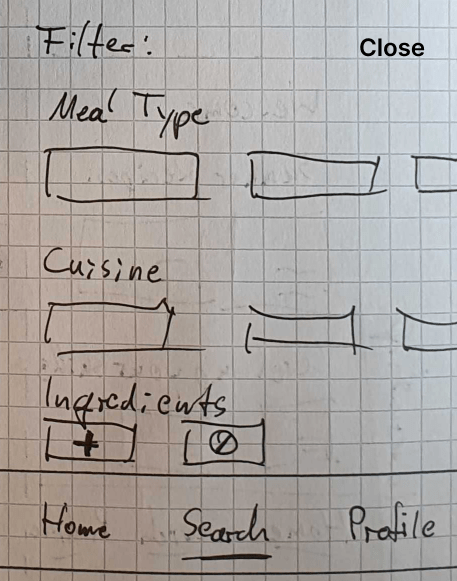 Filter:
Close
Meal Type
Cuisine
Ingredients
+
Home Search Profile